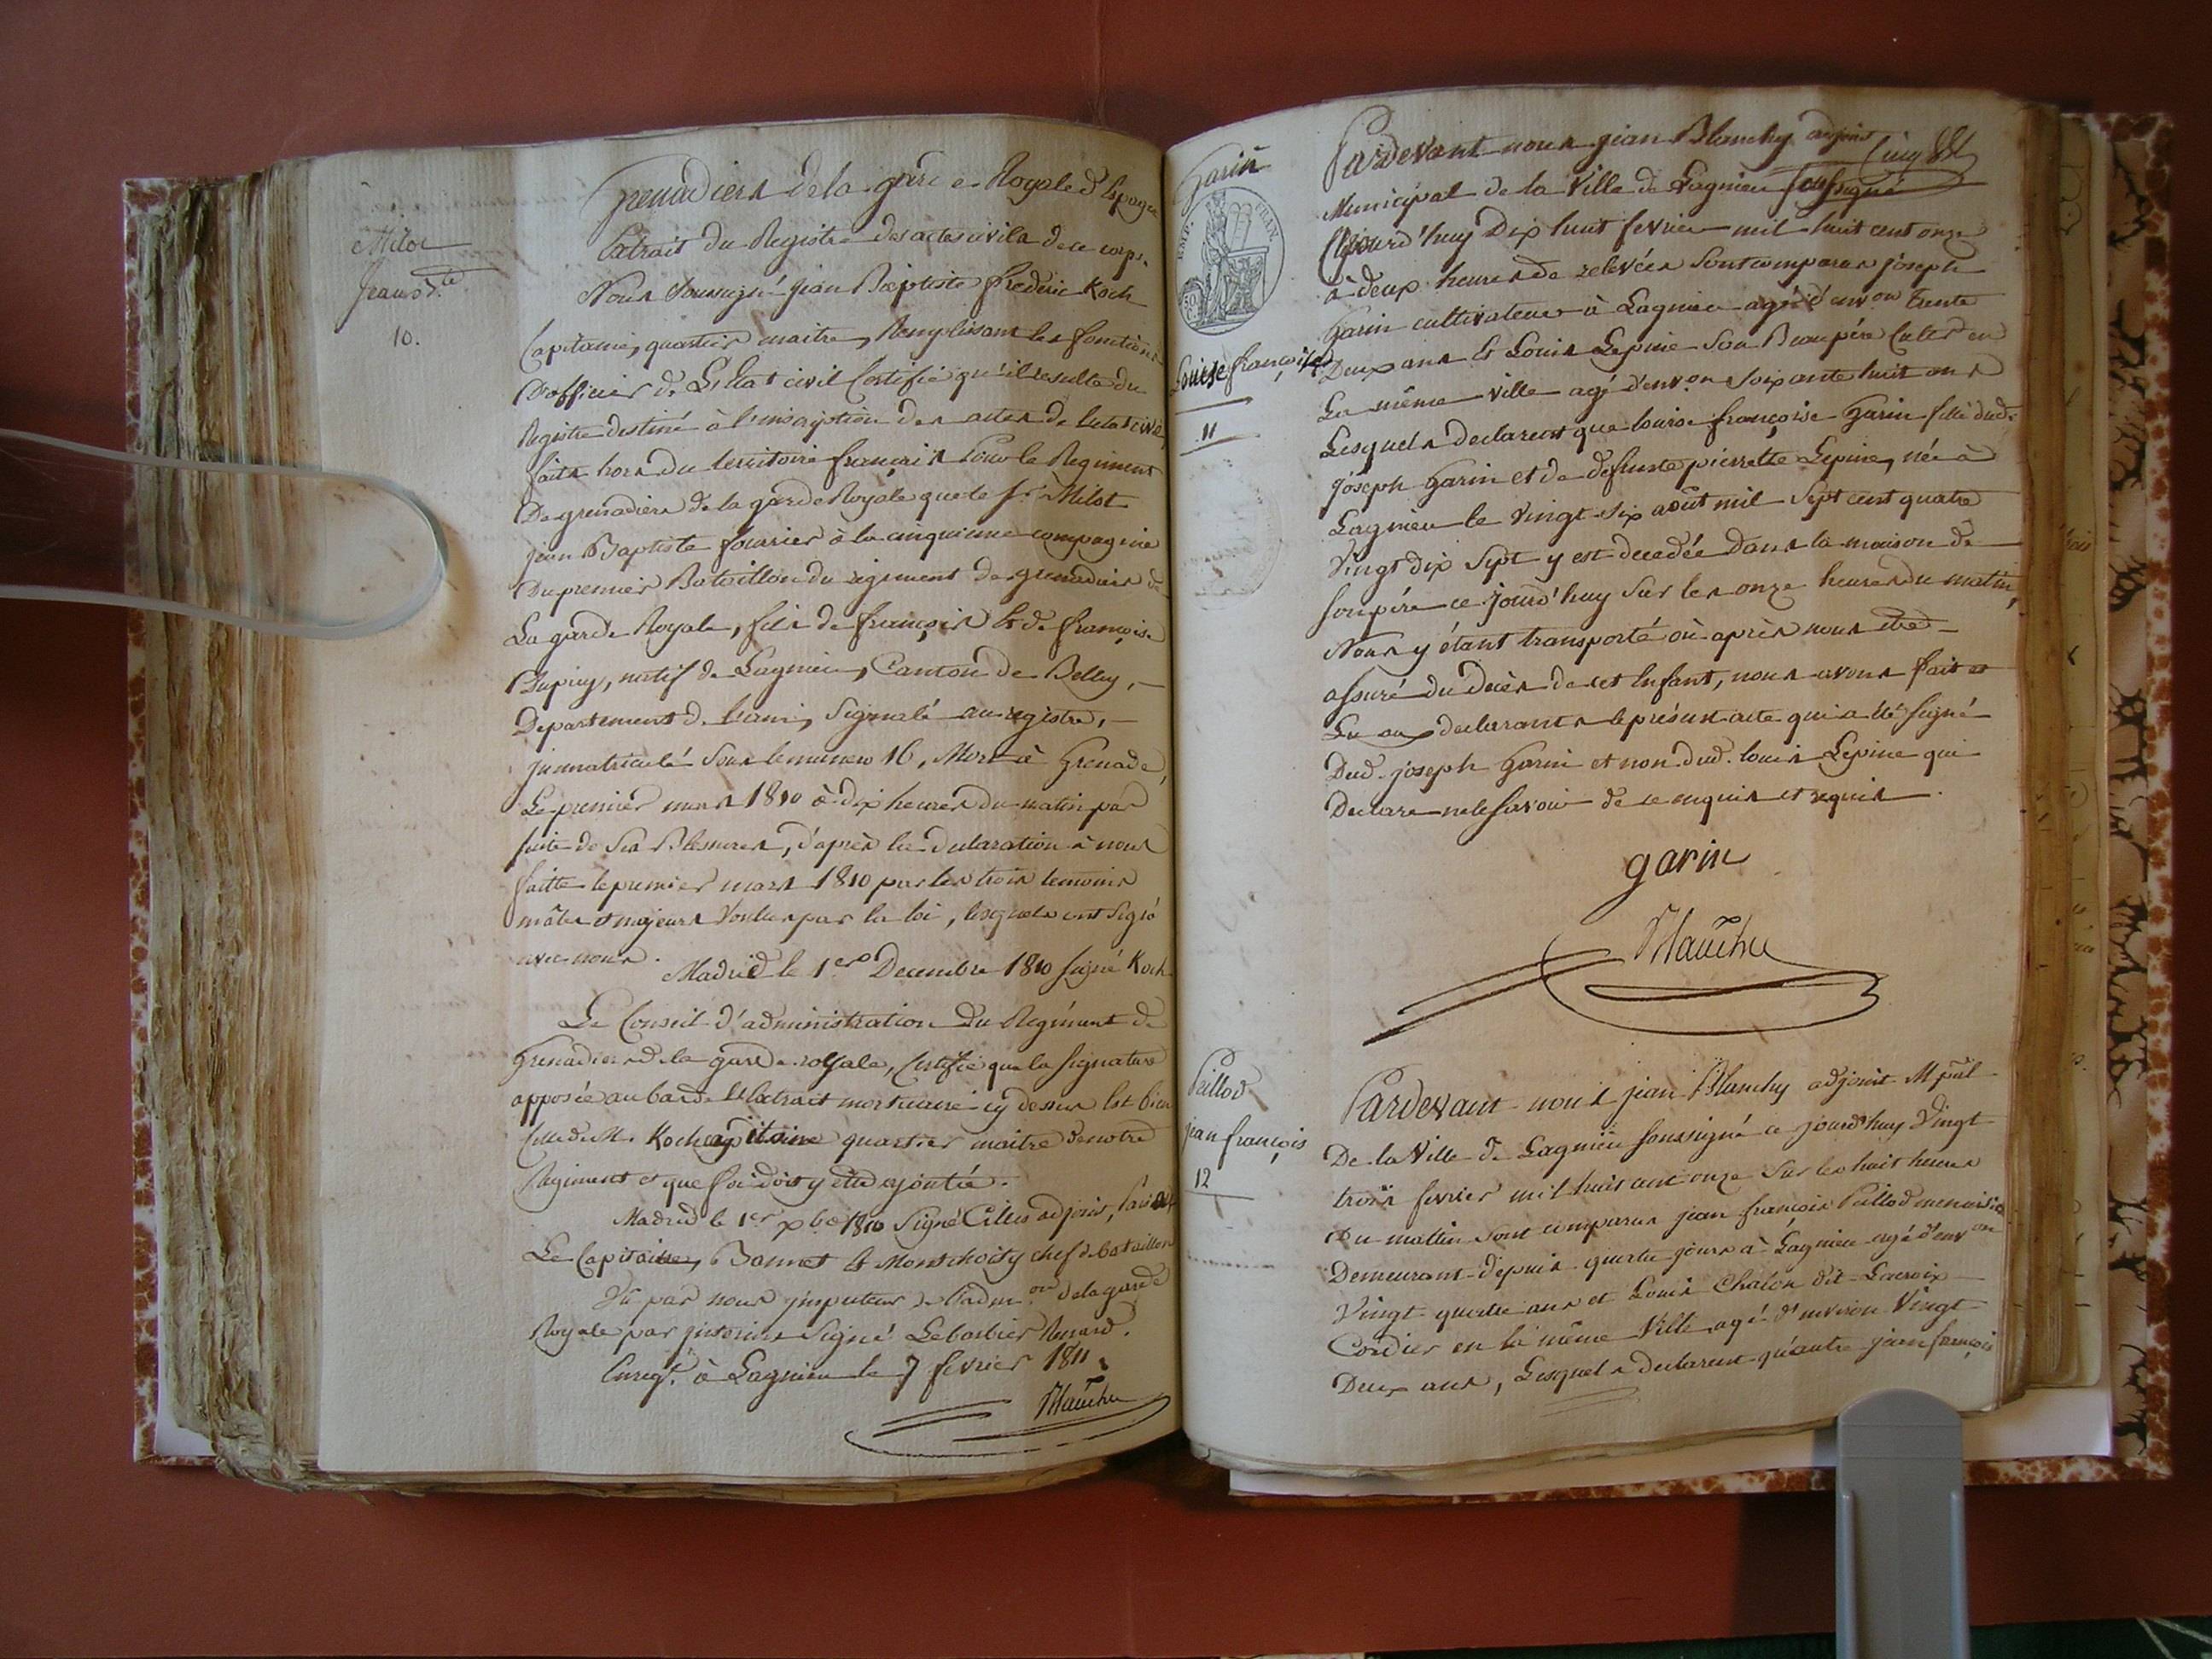 Milot
Jean B.te
10.
Grenadiers de la garde Royale d'Espagne
Extrait du Registre des actes civils de ce corps.
Nous Soussigné jean Baptiste frederic Koch
Capitaine, quartier maitre, Remplissant les fonctions
D'officier de L'Etat civil Certifie qu'il resulte du
Registre destiné à l'inscription des actes de l'etat civil
faits hors du territoire français Pour le Regiment
De grenadiers de la garde Royale que le Sr. Milot
jean Baptiste fourier à la cinquieme compagnie
Du premier Bataillon du regiment de grenadiers de
La garde Royale, fils de françois Et de françoise
Dupuy, natif de Lagnieu, Canton de Belley,
Departement de L'ain, Signalé au registre,
jmmatriculé Sous le numero 16, Mort à Grenade,
Le premier mars 1810 à dix heures du matin par
Suite de Ses Blessures, d'après la déclaration à nous
faitte le premier mars 1810 par les trois temoins
mâles et majeurs Voulus par la loi, lesquels ont Signé
avec nous.
Madrid le 1er Decembre 1810 signé Koch
Le Conseil d'administration Du Regiment de
Grenadiers de la garde royale, Certifie que la signature
apposée au bas de L'Extrait mortuaire cy dessus Est bien
Celle de M. Koch capitaine quartier maitre de notre
Regiment et que foi doit y etre ajoutée.
Madrid le 1er Xbre 1810 Signé Cilles adjoint,
Le Capitaine, Bonnet & Montchoisy chef de bataillon
Vû par nous jnspecteur de l'adm.on de la garde
Royale par jnterim Signé Lebarbier Renard.
Enreg.t à Lagnieu le 7 fevrier 1811.
Blanchy
Garin
EMP. FRAN.
50 C.
Louise françoise
11
Pardevant nous jean Blanchy adjoint
Municipal de la Ville de Lagnieu soussigné
Cejourd'huy Dix huit fevrier mil huit cent onze
à deux heures de relevées Sont comparus joseph
Garin cultivateur à Lagnieu agé d'env.on trente
Deux ans Et Louis Lepine Son Beaupére Culter en
La même ville agé d'env.on Soixante huit ans
Lesquels declarent que louise françoise Garin fille dud.
joseph Garin et de deffunte pierrette Lepine, née à
Lagnieu le Vingt Six août mil Sept cent quatre
Vingt dix Sept y est decedée Dans la maison de
Son pére ce jourd'huy Sur les onze heures du matin,
Nous y étant transporté où après nous etre
assuré du decès de cet Enfant, nous avons fait et
Lu aux declarants le présent acte qui a été signé
Dud. joseph Garin et non dud. louis Lepine qui
Declare ne le Savoir de ce enquis et requis.
garin
Blanchy
Paillod
jean françois
12
Pardevant nous jean Blanchy adjoint Mpal
De la Ville de Lagnieu soussigné ce jourd'huy Vingt
trois fevrier mil huit cent onze Sur les huit heures
Du mattin Sont comparus jean françois Paillod menuisier
Demeurant depuis quatre jours à Lagnieu agé d'env.on
Vingt quatre ans et Louis Chalon dit Lacroix
Cordier en la même Ville agé d'environ Vingt
Deux ans, Lesquels declarent qu'autre jean françois